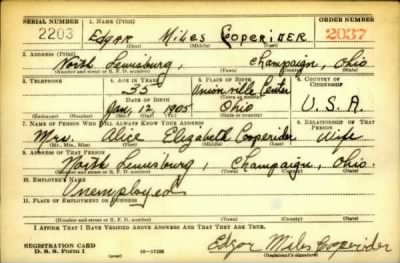 SERIAL NUMBER 1. NAME (Print) ORDER NUMBER
2203 Edgar Miles Cooperider 2037
(First) (Middle) (Last)
2. ADDRESS (Print)
North Lewisburg, Champaign, Ohio
(Number and street or R. F. D. number) (Town) (County) (State)
3. TELEPHONE 4. AGE IN YEARS 5. PLACE OF BIRTH 6. COUNTRY OF CITIZENSHIP
35 Unionville Center
DATE OF BIRTH (Town or county)
Jan. 12, 1905 Ohio U.S.A.
(Exchange) (Number) (Mo.) (Day) (Yr.) (State or country)
7. NAME OF PERSON WHO WILL ALWAYS KNOW YOUR ADDRESS 8. RELATIONSHIP OF THAT PERSON
Mrs. Alice Elizabeth Cooperider Wife
(Mr., Mrs., Miss) (First) (Middle) (Last)
9. ADDRESS OF THAT PERSON
North Lewisburg, Champaign, Ohio.
(Number and street or R. F. D. number) (Town) (County) (State)
10. EMPLOYER'S NAME
Unemployed
11. PLACE OF EMPLOYMENT OR BUSINESS
(Number and street or R. F. D. number) (Town) (County) (State)
I AFFIRM THAT I HAVE VERIFIED ABOVE ANSWERS AND THAT THEY ARE TRUE.
REGISTRATION CARD Edgar Miles Cooperider
D. S. S. Form 1 16-17105 (Registrant's signature)